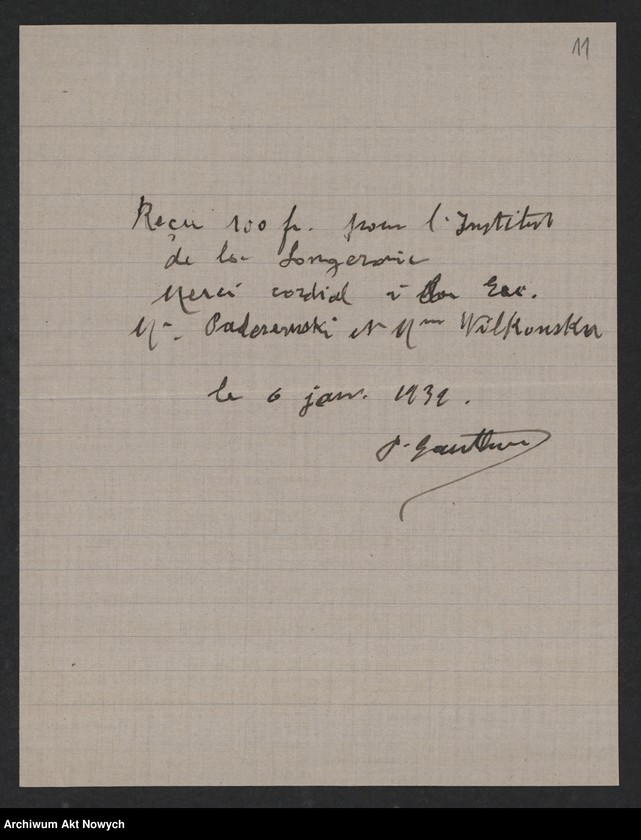 11
Reçu 100 fr. pour l'Institut
de la Longeraie
Merci cordial à Son Exc.
Mr. Paderewski et Mme Wilkonska
le 6 janv. 1939.
P. Gauthier
Archiwum Akt Nowych